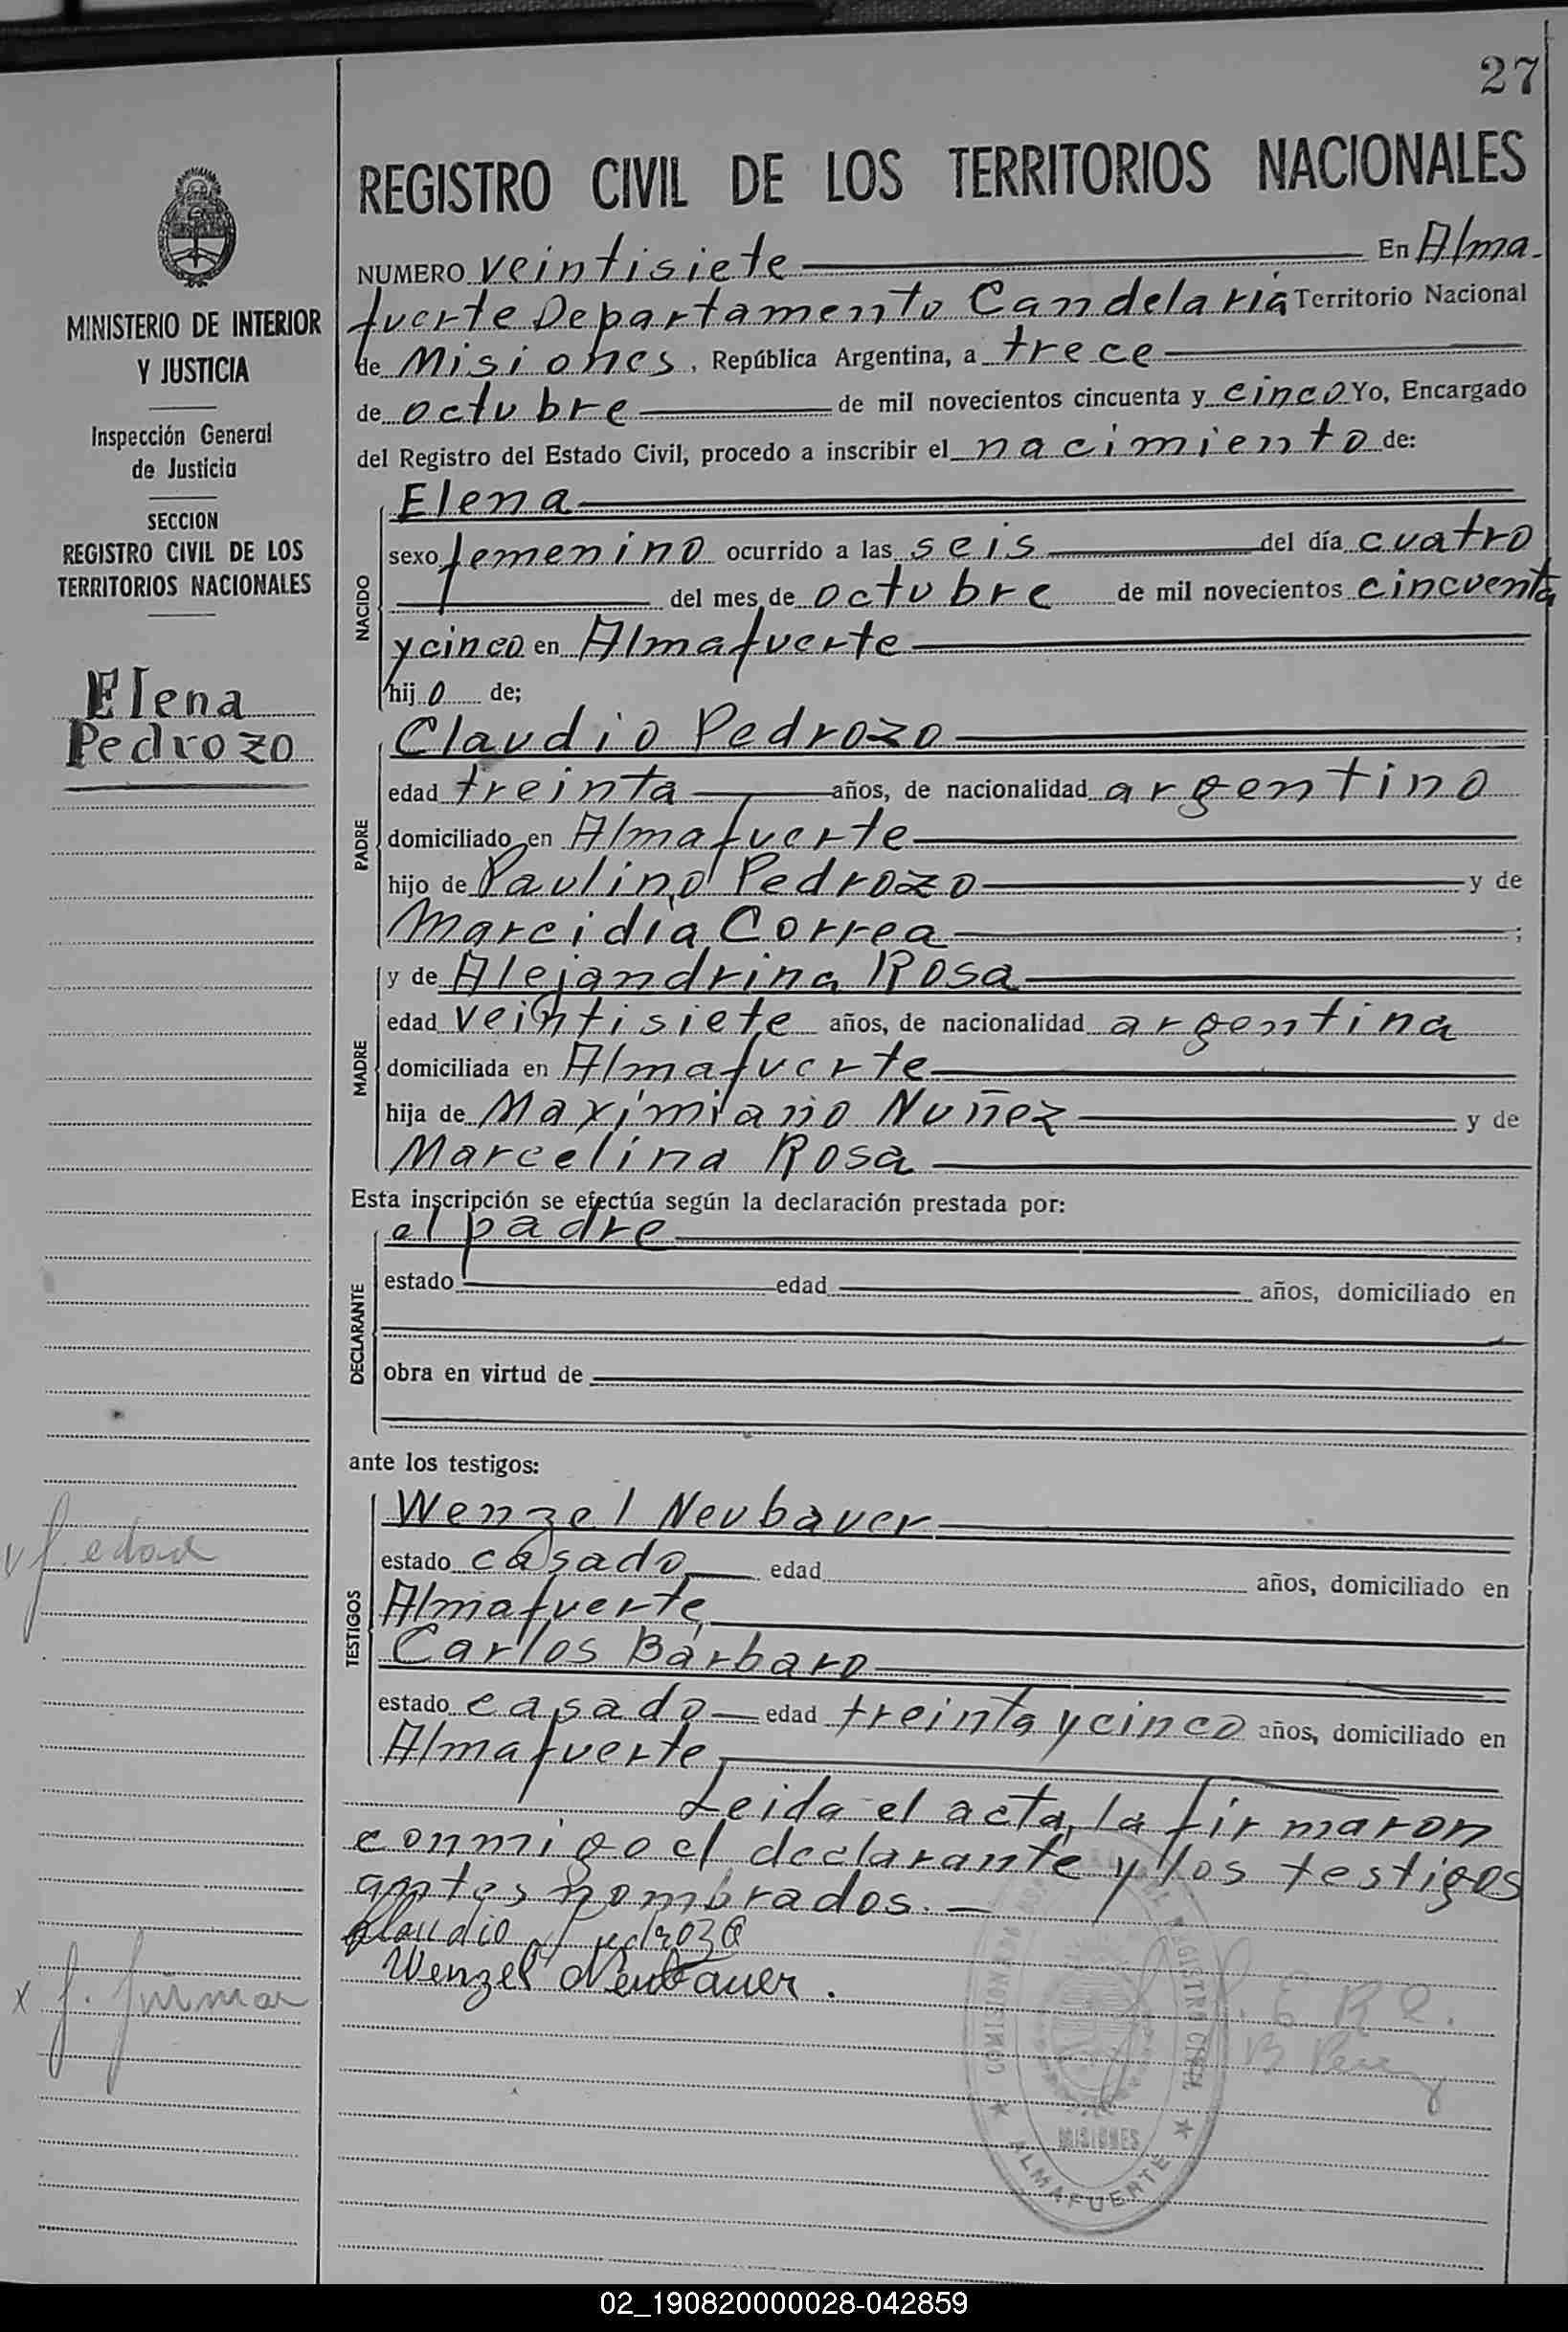 27
REGISTRO CIVIL DE LOS TERRITORIOS NACIONALES
NUMERO veintisiete En Alma-
fuerte Departamento Candelaria Territorio Nacional
de Misiones, República Argentina, a trece
de octubre de mil novecientos cincuenta y cinco Yo, Encargado
del Registro del Estado Civil, procedo a inscribir el nacimiento de:
NACIDO
Elena
sexo femenino ocurrido a las seis del día cuatro
del mes de octubre de mil novecientos cincuenta
y cinco en Almafuerte
hijo de;
PADRE
Claudio Pedrozo
edad treinta años, de nacionalidad argentino
domiciliado en Almafuerte
hijo de Paulino Pedrozo y de
Marcidia Correa ;
MADRE
y de Alejandrina Rosa
edad veintisiete años, de nacionalidad argentina
domiciliada en Almafuerte
hija de Maximiano Nuñez y de
Marcelina Rosa
Esta inscripción se efectúa según la declaración prestada por:
DECLARANTE
el padre
estado edad años, domiciliado en
obra en virtud de
ante los testigos:
TESTIGOS
Wenzel Neubauer
estado casado edad años, domiciliado en
Almafuerte,
Carlos Bárbaro
estado casado edad treinta y cinco años, domiciliado en
Almafuerte
Leida el acta, la firmaron
conmigo el declarante y los testigos
antes nombrados. —
Claudio Pedrozo
Wenzel Neubauer.
REGISTRO CIVIL
MISIONES
ALMAFUERTE
MINISTERIO DE INTERIOR
Y JUSTICIA
Inspección General
de Justicia
SECCION
REGISTRO CIVIL DE LOS
TERRITORIOS NACIONALES
Elena
Pedrozo
f. edad
x f. firmar
02_190820000028-042859